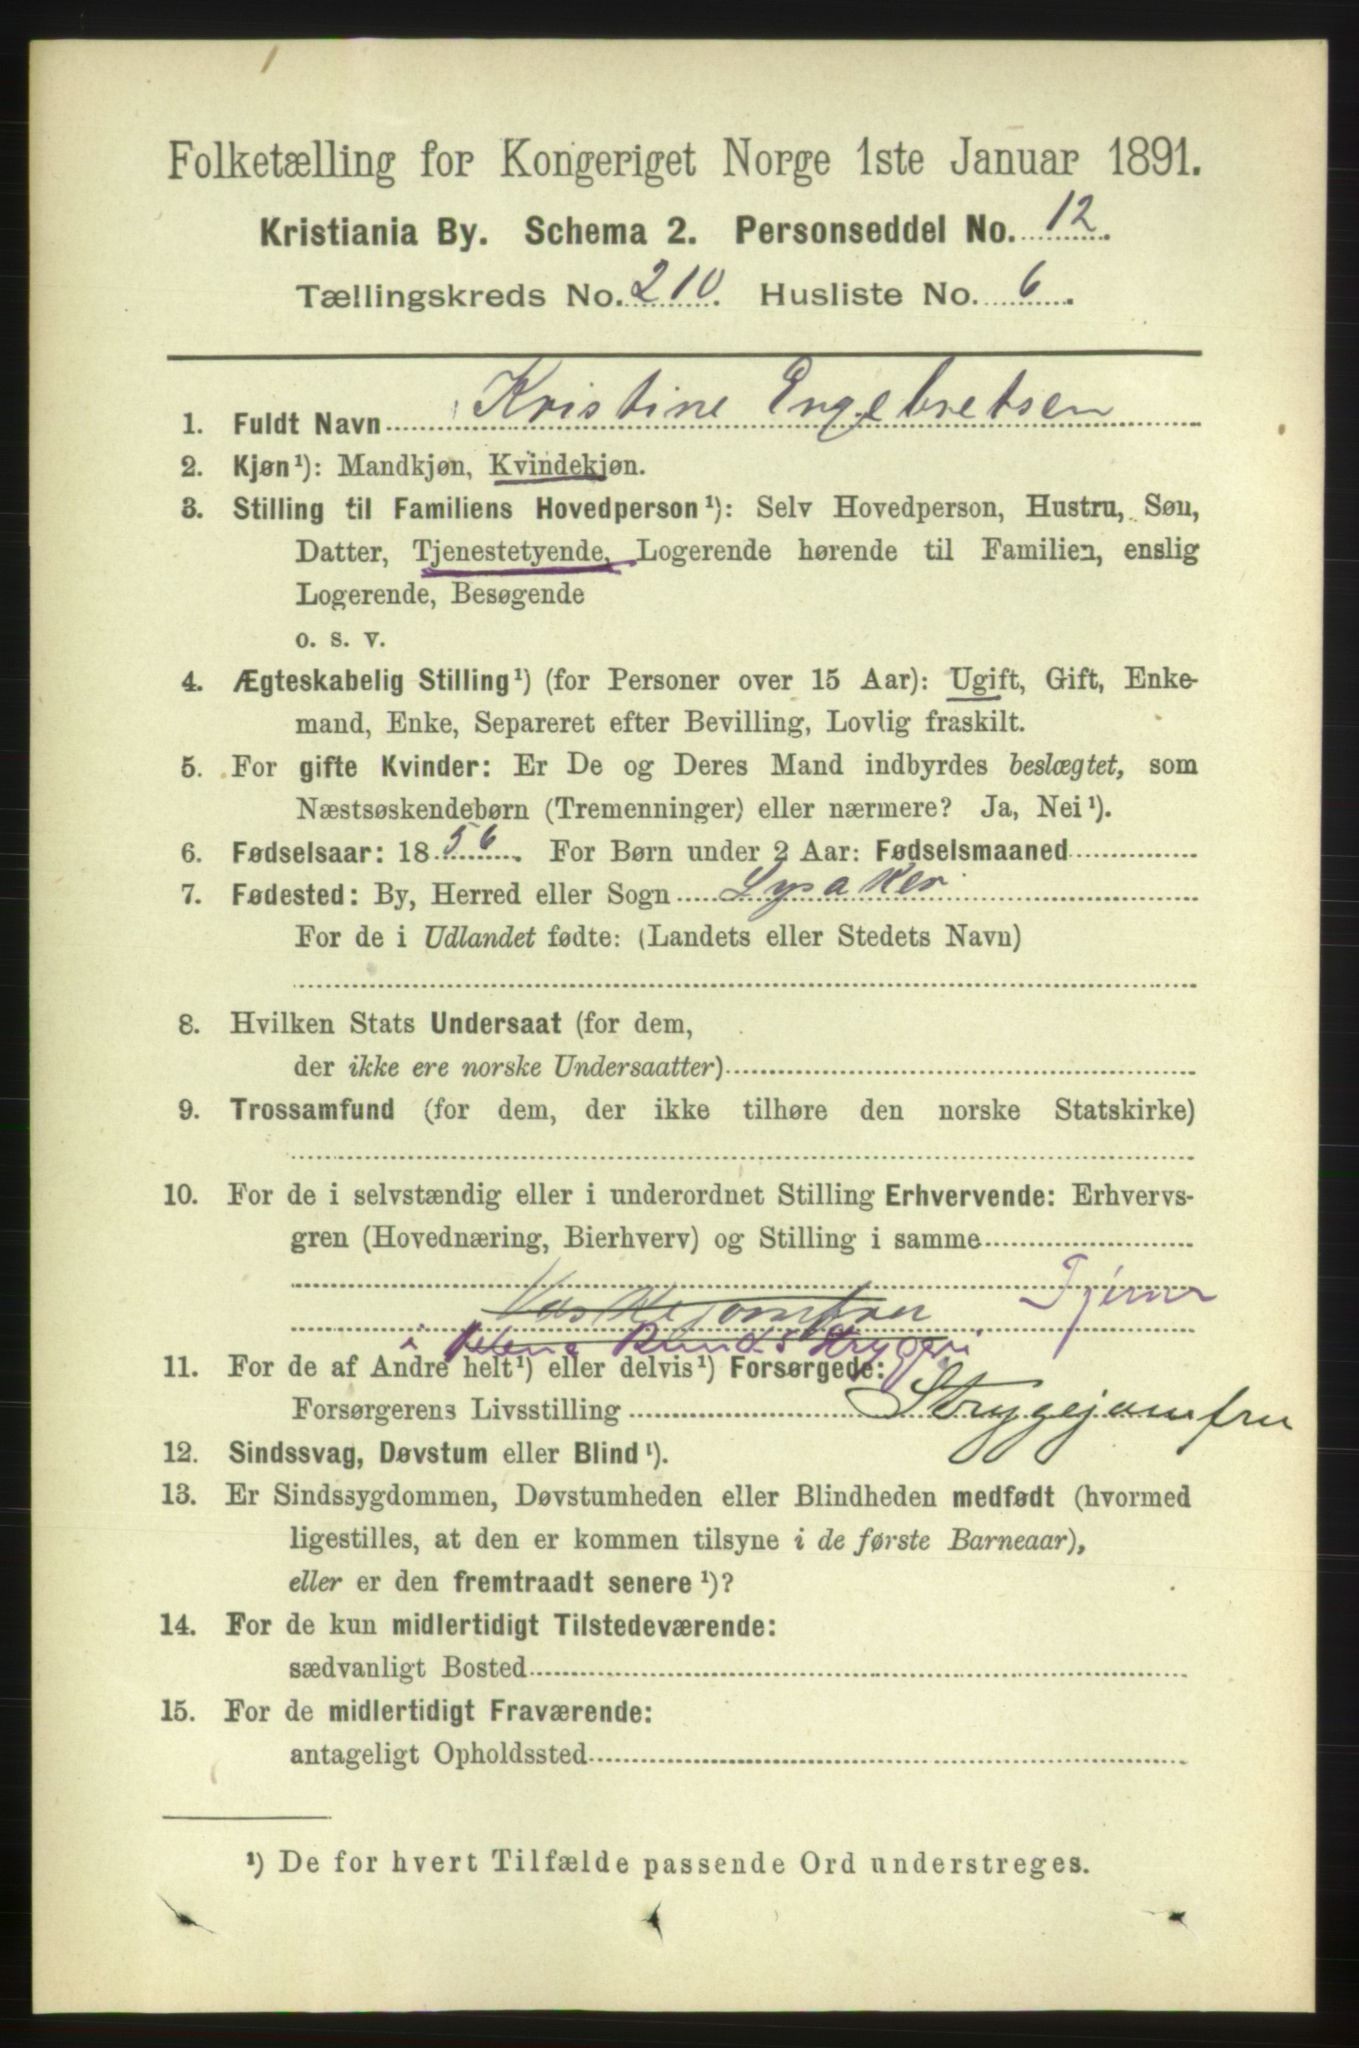 Folketælling for Kongeriget Norge 1ste Januar 1891.
Kristiania By. Schema 2. Personseddel No. 12.
Tællingskreds No. 210. Husliste No. 6.
1. Fuldt Navn Kristine Engebretsen
2. Kjøn¹): Mandkjøn, Kvindekjøn.
3. Stilling til Familiens Hovedperson¹): Selv Hovedperson, Hustru, Søn,
Datter, Tjenestetyende, Logerende hørende til Familien, enslig
Logerende, Besøgende
o. s. v.
4. Ægteskabelig Stilling¹) (for Personer over 15 Aar): Ugift, Gift, Enke-
mand, Enke, Separeret efter Bevilling, Lovlig fraskilt.
5. For gifte Kvinder: Er De og Deres Mand indbyrdes beslægtet, som
Næstsøskendebørn (Tremenninger) eller nærmere? Ja, Nei¹).
6. Fødselsaar: 1856. For Børn under 2 Aar: Fødselsmaaned
7. Fødested: By, Herred eller Sogn Lysaker
For de i Udlandet fødte: (Landets eller Stedets Navn)
8. Hvilken Stats Undersaat (for dem,
der ikke ere norske Undersaatter)
9. Trossamfund (for dem, der ikke tilhøre den norske Statskirke)
10. For de i selvstændig eller i underordnet Stilling Erhvervende: Erhvervs-
gren (Hovednæring, Bierhverv) og Stilling i samme
Vaskejomfru Tjener
i Strygeri
11. For de af Andre helt¹) eller delvis¹) Forsørgede:
Forsørgerens Livsstilling Strygejomfru
12. Sindssvag, Døvstum eller Blind¹).
13. Er Sindssygdommen, Døvstumheden eller Blindheden medfødt (hvormed
ligestilles, at den er kommen tilsyne i de første Barneaar),
eller er den fremtraadt senere¹)?
14. For de kun midlertidigt Tilstedeværende:
sædvanligt Bosted
15. For de midlertidigt Fraværende:
antageligt Opholdssted
¹) De for hvert Tilfælde passende Ord understreges.